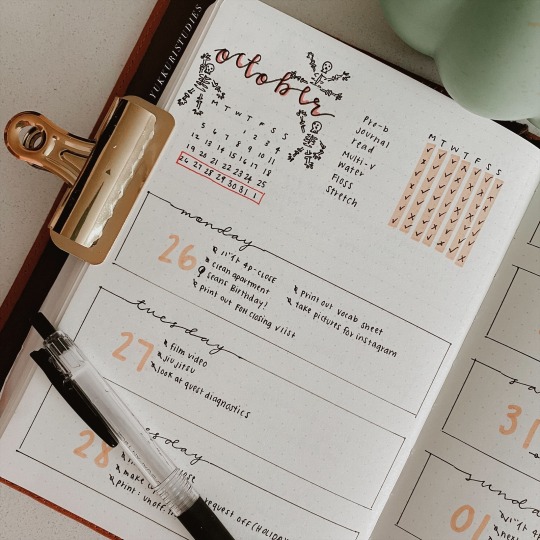 YUKKURISTUDIES
october
M T W T F S S
1 2 3 4
5 6 7 8 9 10 11
12 13 14 15 16 17 18
19 20 21 22 23 24 25
26 27 28 29 30 31 1
Pro-b
journal
read
Multi-V
Water
Floss
Stretch
M T W T F S S
monday
26
バイト 4p-CLOSE
clean apartment
Seans Birthday!
print out FOH closing v list
print out vocab sheet
take pictures for instagram
tuesday
27
film video
jiujitsu
look at quest diagnostics
28
esday
make
print: unoff.
request off (HOLIDAY
31
sa
sunday
01
バイト 4
next